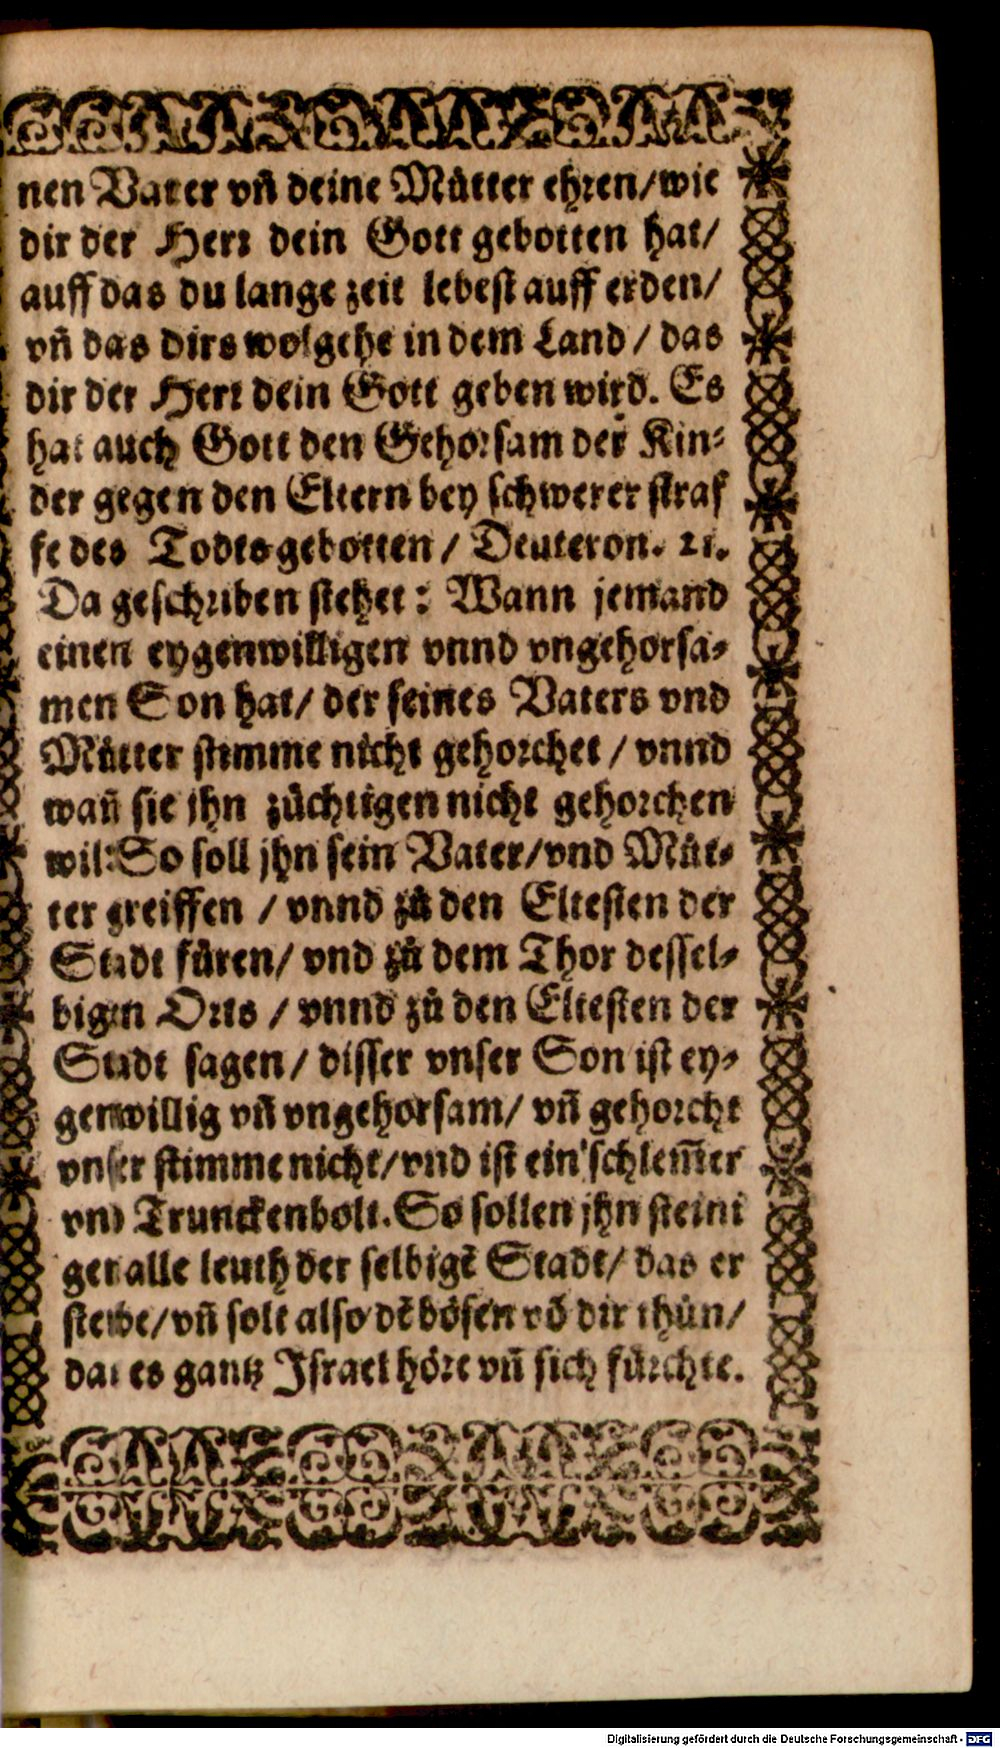 nen Vater vñ deine Můtter ehren/wie
dir der Herr dein Gott gebotten hat/
auff das du lange zeit lebest auff erden/
vñ das dirs wolgehe in dem Land / das
dir der Herr dein Gott geben wird. Es
hat auch Gott den Gehorsam der Kin-
der gegen den Eltern bey schwerer straf
fe des Todts gebotten / Deuteron. 21.
Da geschriben stehet: Wann jemand
einen eygenwilligen vnnd vngehorsa-
men Son hat/ der seines Vaters vnd
Můtter stimme nicht gehorchet / vnnd
wañ sie jhn züchtigen nicht gehorchen
wil: So soll jhn sein Vater/vnd Můt-
ter greiffen / vnnd zů den Eltesten der
Stadt füren/ vnd zů dem Thor dessel-
bigen Orts / vnnd zů den Eltesten der
Stadt sagen/ disser vnser Son ist ey-
genwillig vñ vngehorsam/ vñ gehorcht
vnser stimme nicht/vnd ist ein schlem̃er
vnd Trunckenbolt. So sollen jhn steini
gen alle leuth der selbigẽ Stadt/ das er
sterbe/vñ solt also dẽ bösen võ dir thůn/
das es gantz Israel höre vñ sich fürchte.
Digitalisierung gefördert durch die Deutsche Forschungsgemeinschaft - DFG